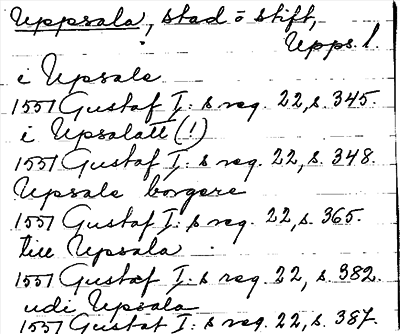 Uppsala, stad o stift,
Upps. l.
i Upsale
1551 Gustaf I:s reg. 22, s. 345.
i Upsalatt (!)
1551 Gustaf I:s reg. 22, s. 348.
Upsale borgere
1551 Gustaf I:s reg. 22, s. 365.
till Upsala
1551 Gustaf I:s reg. 22, s. 382.
udi Upsala
1551 Gustaf I:s reg. 22, s. 387.